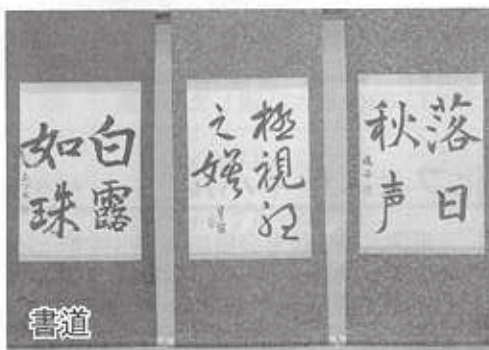 落日
秋声
極視聽
之娛
白露
如珠
書道